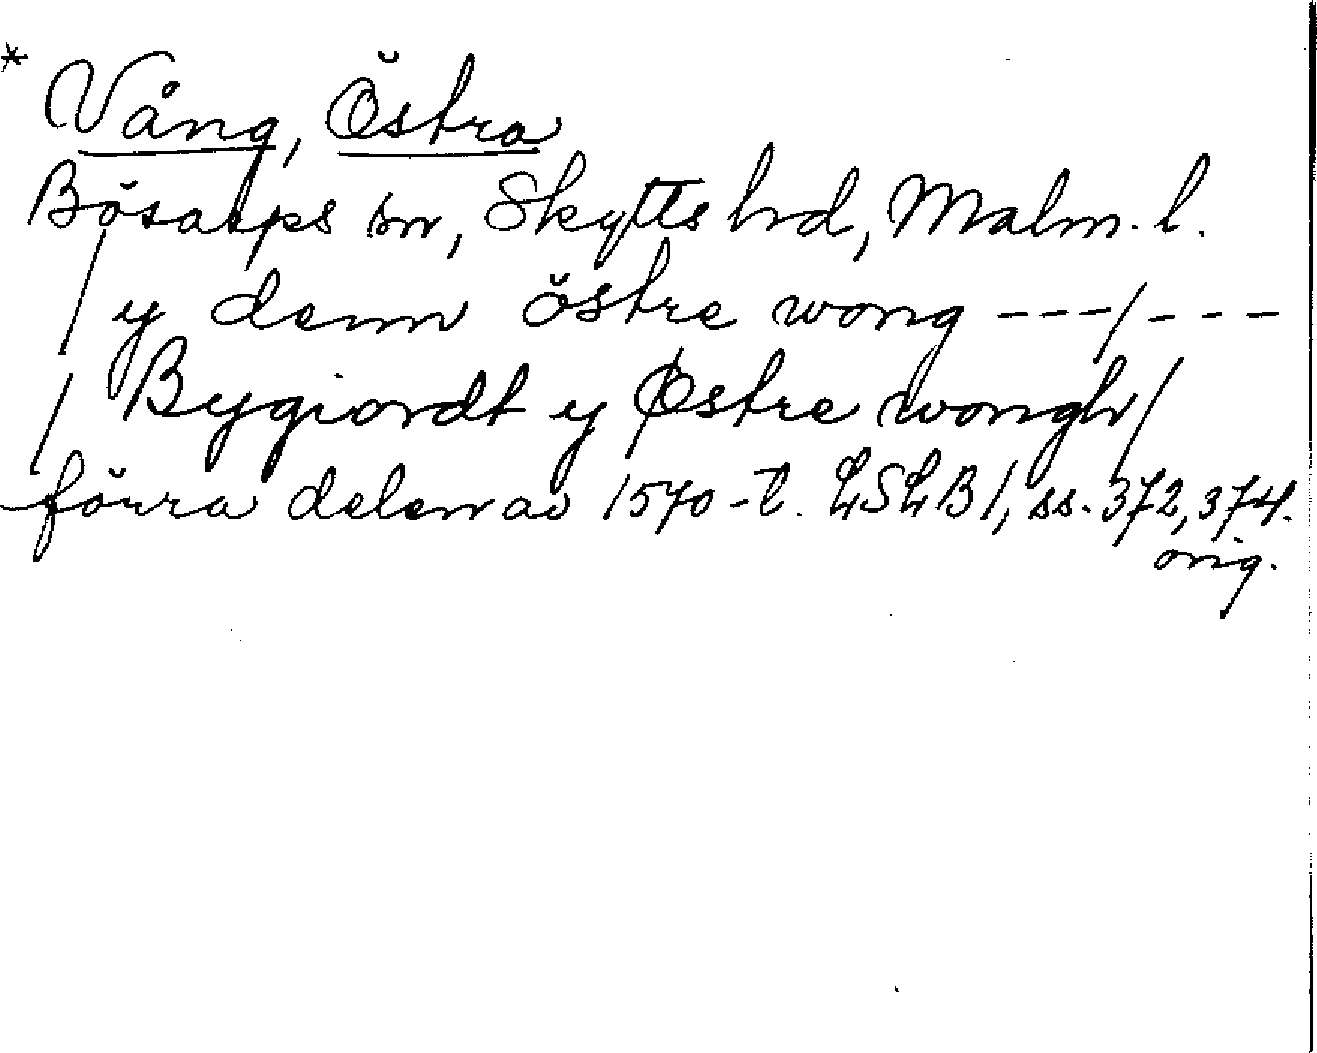 * Vång, Östra
Bösarps sn, Skytts hrd, Malm. l.
/ y denn östre wong ---/---
/ Bygiordt y Østre wongh/
förra delen av 1570-t. LSLB 1, ss. 372, 374.
orig.